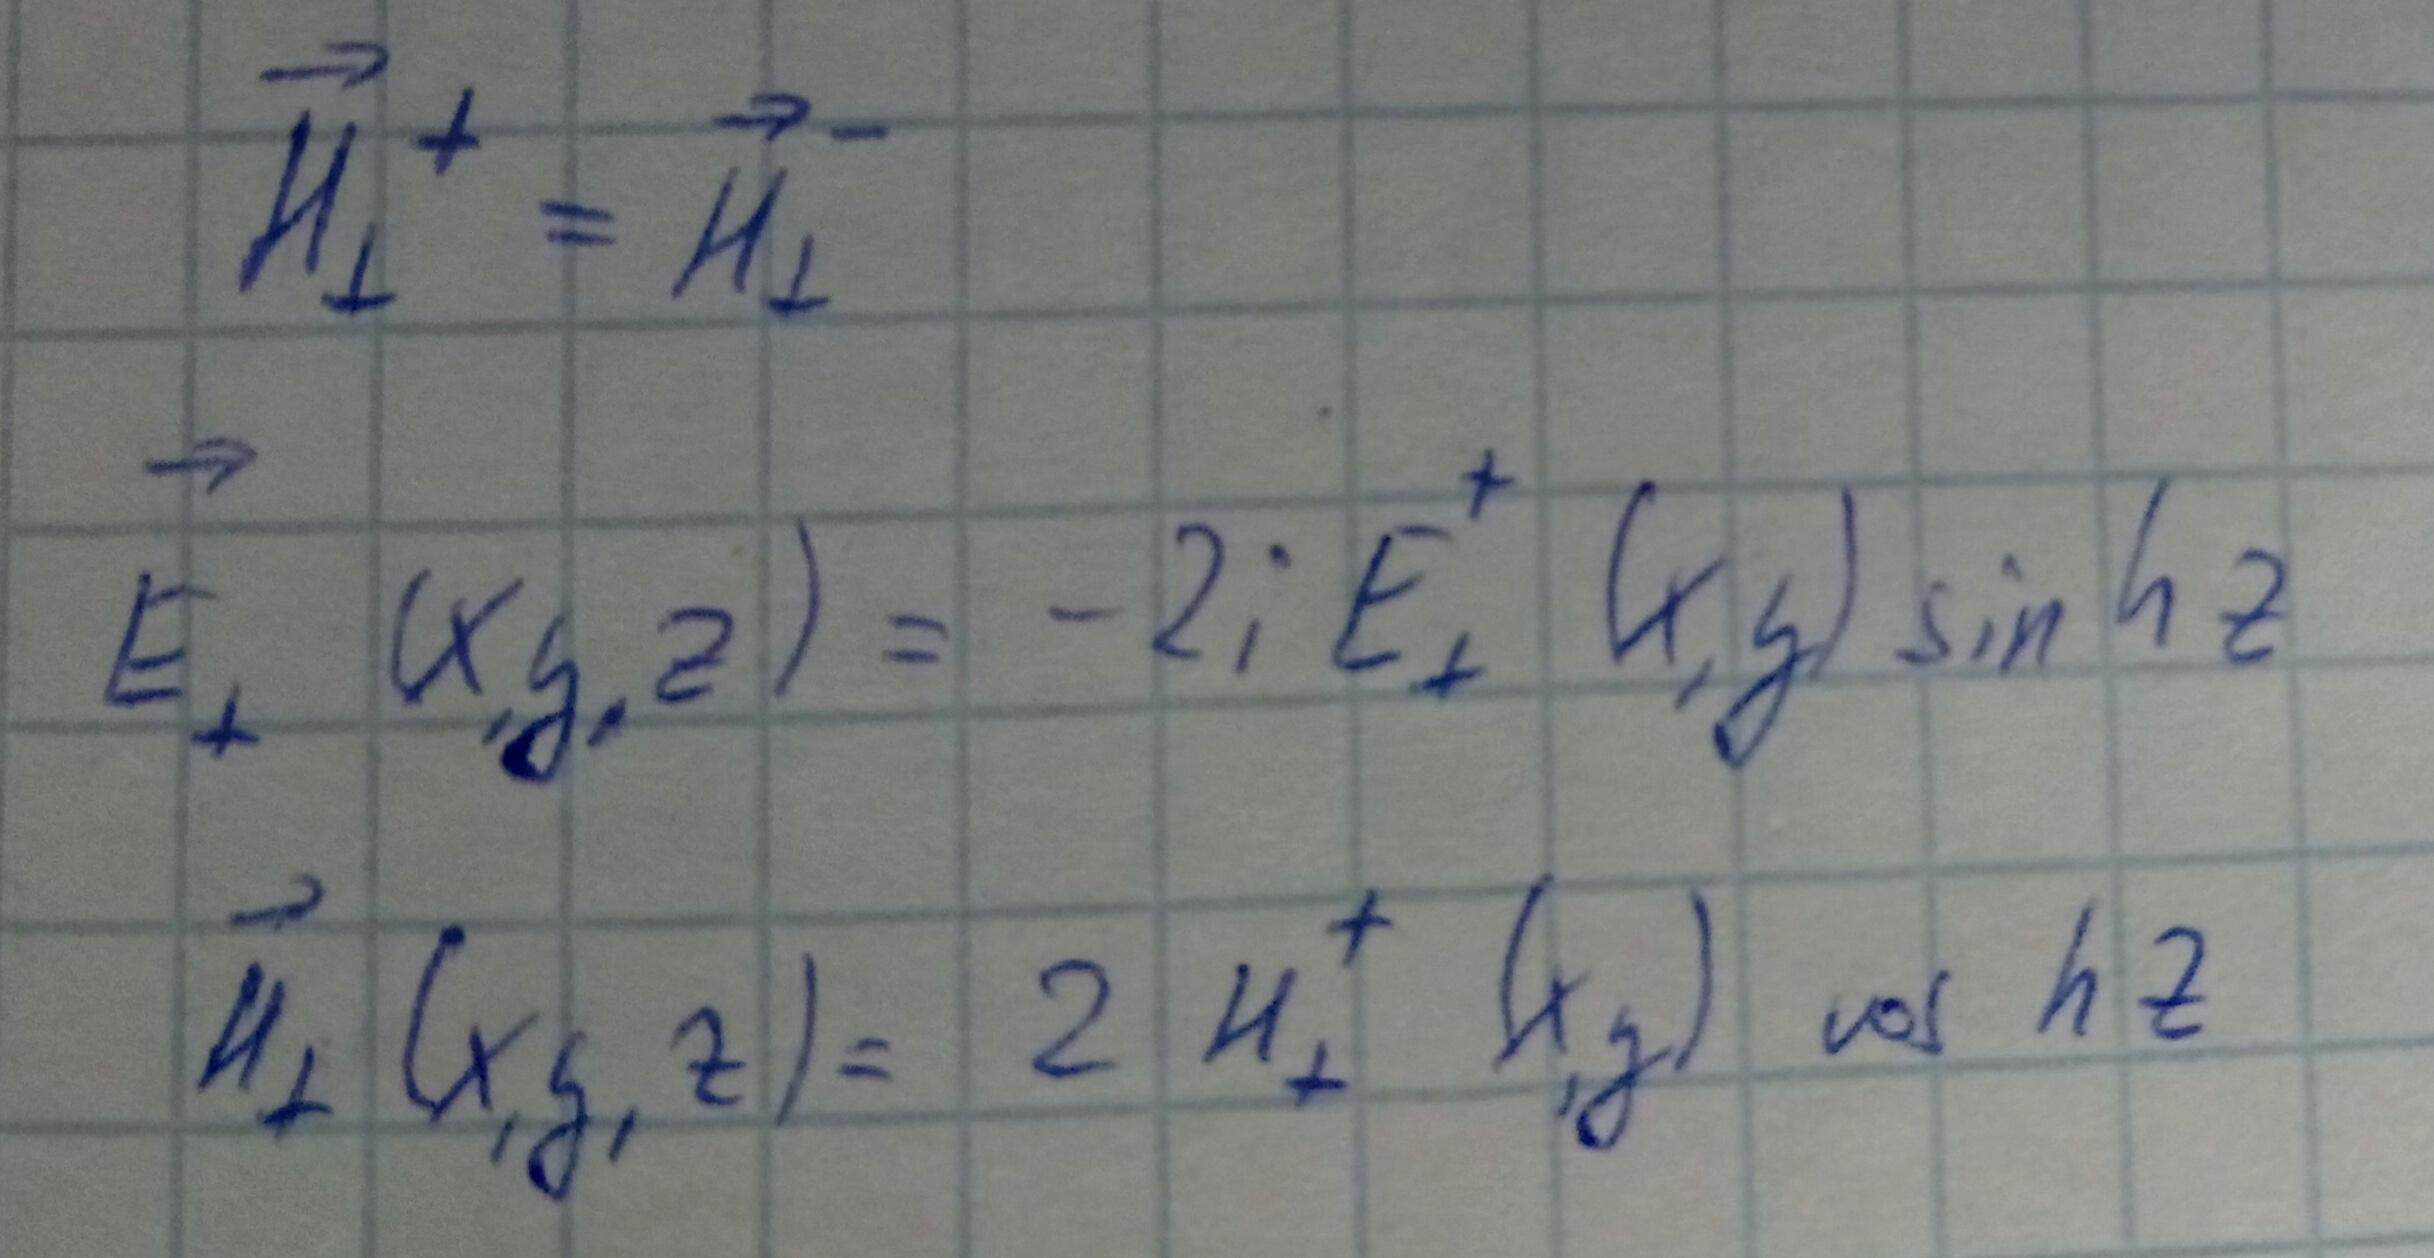 $\vec{H}_{\perp}^{+} = \vec{H}_{\perp}^{-}$
$\vec{E}_{\perp}(x,y,z) = -2i E_{\perp}^{+}(x,y) \sin hz$
$\vec{H}_{\perp}(x,y,z) = 2 H_{\perp}^{+}(x,y) \cos hz$